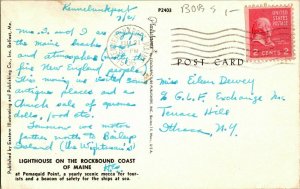 Kennebunkport
7/21
P2403
Mrs. J. and I are doing
the Maine beaks
and atmosphere (mostly the
fine New England people).
This morning we visited some
antique places and a
Church sale of aprons
dolls, food etc.
Tomorrow we motor
farther north to Bailey
Island (the Wightman's)
LIGHTHOUSE ON THE ROCKBOUND COAST
OF MAINE
at Pemaquid Point, a yearly scenic mecca for tour-
ists and a beacon of safety for the ships at sea.
Published by Eastern Illustrating and Publishing Co., Inc. Belfast, Me.
POST CARD
UNITED STATES POSTAGE
2 CENTS 2
Miss Eileen Dewey
% G.L.F. Exchange Inc
Terrace Hill
Ithaca, N.Y.